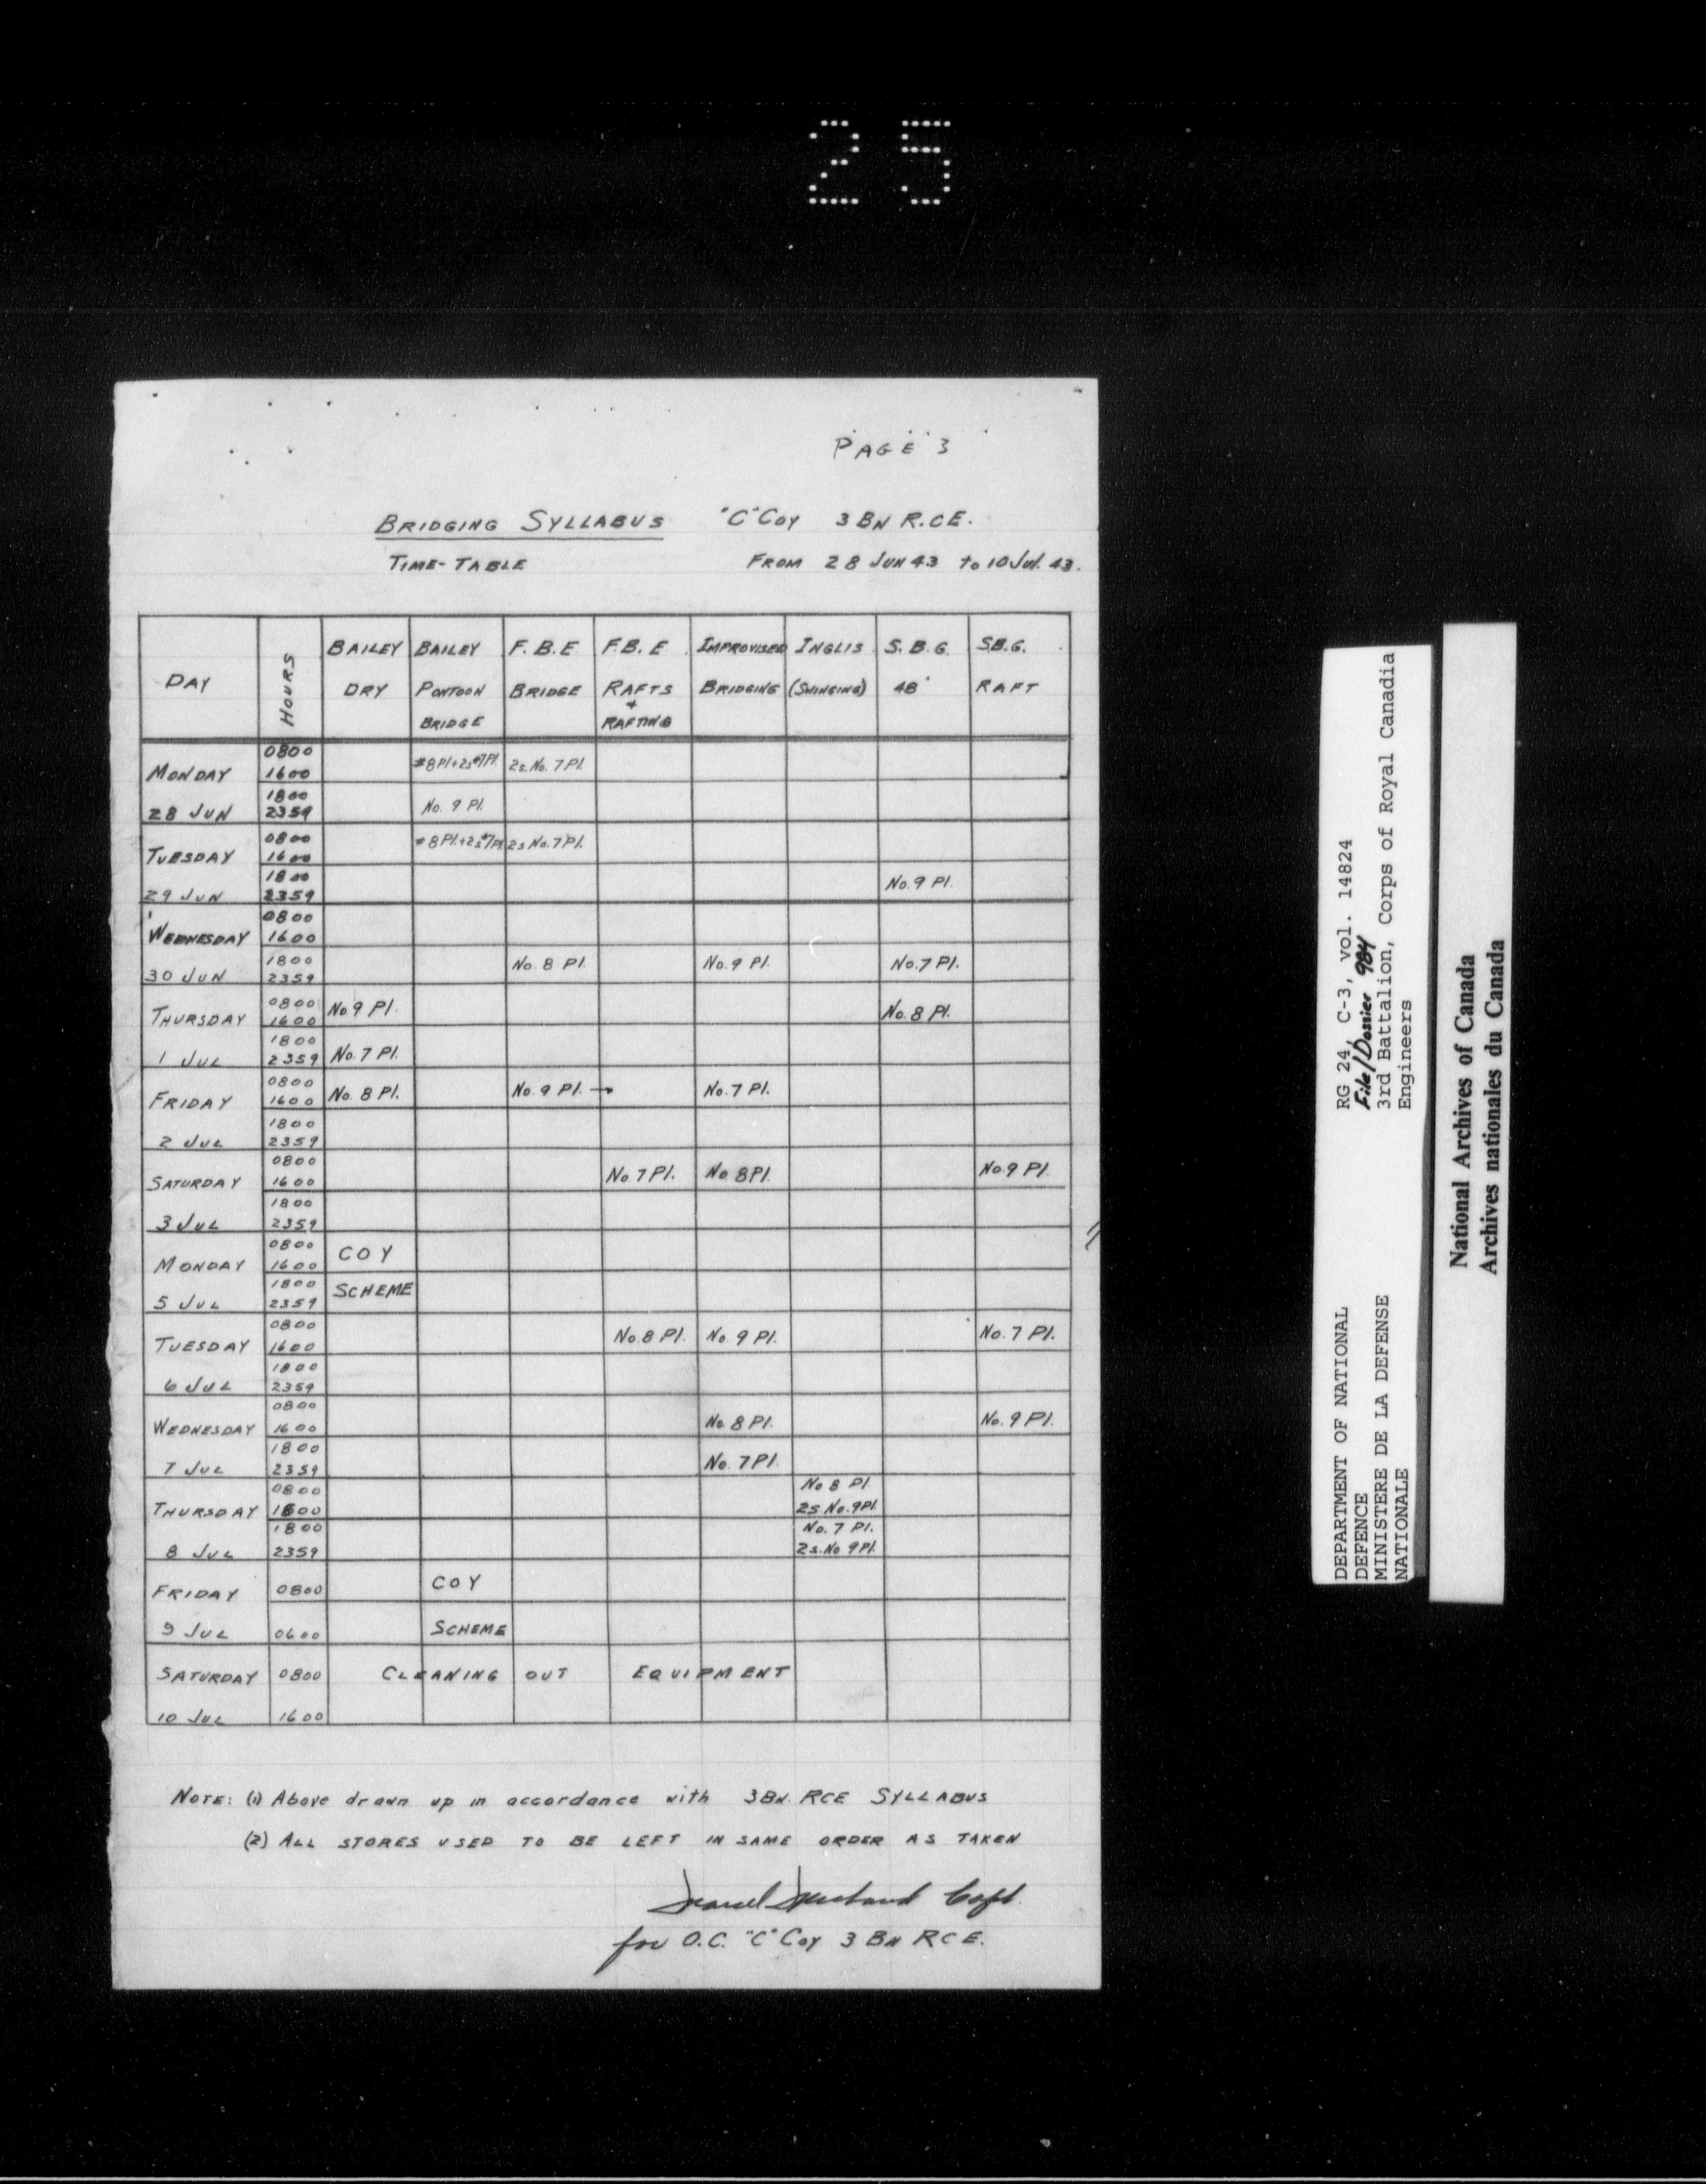 25
PAGE 3
BRIDGING SYLLABUS "C" COY 3 BN R.C.E.
TIME-TABLE FROM 28 JUN 43 to 10 JUL. 43.
DAY HOURS BAILEY DRY BAILEY PONTOON BRIDGE F.B.E BRIDGE F.B.E. RAFTS + RAFTING IMPROVISED BRIDGING INGLIS (SWINGING) S.B.G. 48' S.B.G. RAFT
MONDAY 0800 1600 #8Pl+2s#7Pl. 2s.No.7Pl.
28 JUN 1800 2359 No. 9 Pl.
TUESDAY 0800 1600 #8Pl.+2s#7Pl 2s No.7Pl.
29 JUN 1800 2359 No.9 Pl.
WEDNESDAY 0800 1600
30 JUN 1800 2359 No. 8 Pl. No.9 Pl. No.7 Pl.
THURSDAY 0800 1600 No 9 Pl. No.8 Pl.
1 JUL 1800 2359 No. 7 Pl.
FRIDAY 0800 1600 No. 8 Pl. No. 9 Pl. → No.7 Pl.
2 JUL 1800 2359
SATURDAY 0800 1600 No.7 Pl. No.8Pl. No.9 Pl.
3 JUL 1800 2359
MONDAY 0800 1600 COY
5 JUL 1800 2359 SCHEME
TUESDAY 0800 1600 No.8 Pl. No 9 Pl. No.7 Pl.
6 JUL 1800 2359
WEDNESDAY 0800 1600 No.8 Pl. No.9 Pl.
7 JUL 1800 2359 No. 7Pl.
THURSDAY 0800 1600 No 8 Pl. 2s.No.9Pl.
8 JUL 1800 2359 No. 7 Pl. 2s.No 9Pl.
FRIDAY 0800 COY
9 JUL 0600 SCHEME
SATURDAY 0800 CLEANING OUT EQUIPMENT
10 JUL 1600
NOTE: (1) Above drawn up in accordance with 3BN. RCE SYLLABUS
(2) ALL STORES USED TO BE LEFT IN SAME ORDER AS TAKEN
Capt.
for O.C. "C" COY 3 BN RCE.
DEPARTMENT OF NATIONAL RG 24, C-3, vol. 14824
DEFENCE File/Dossier 984
MINISTERE DE LA DEFENSE 3rd Battalion, Corps of Royal Canadia
NATIONALE Engineers
National Archives of Canada
Archives nationales du Canada